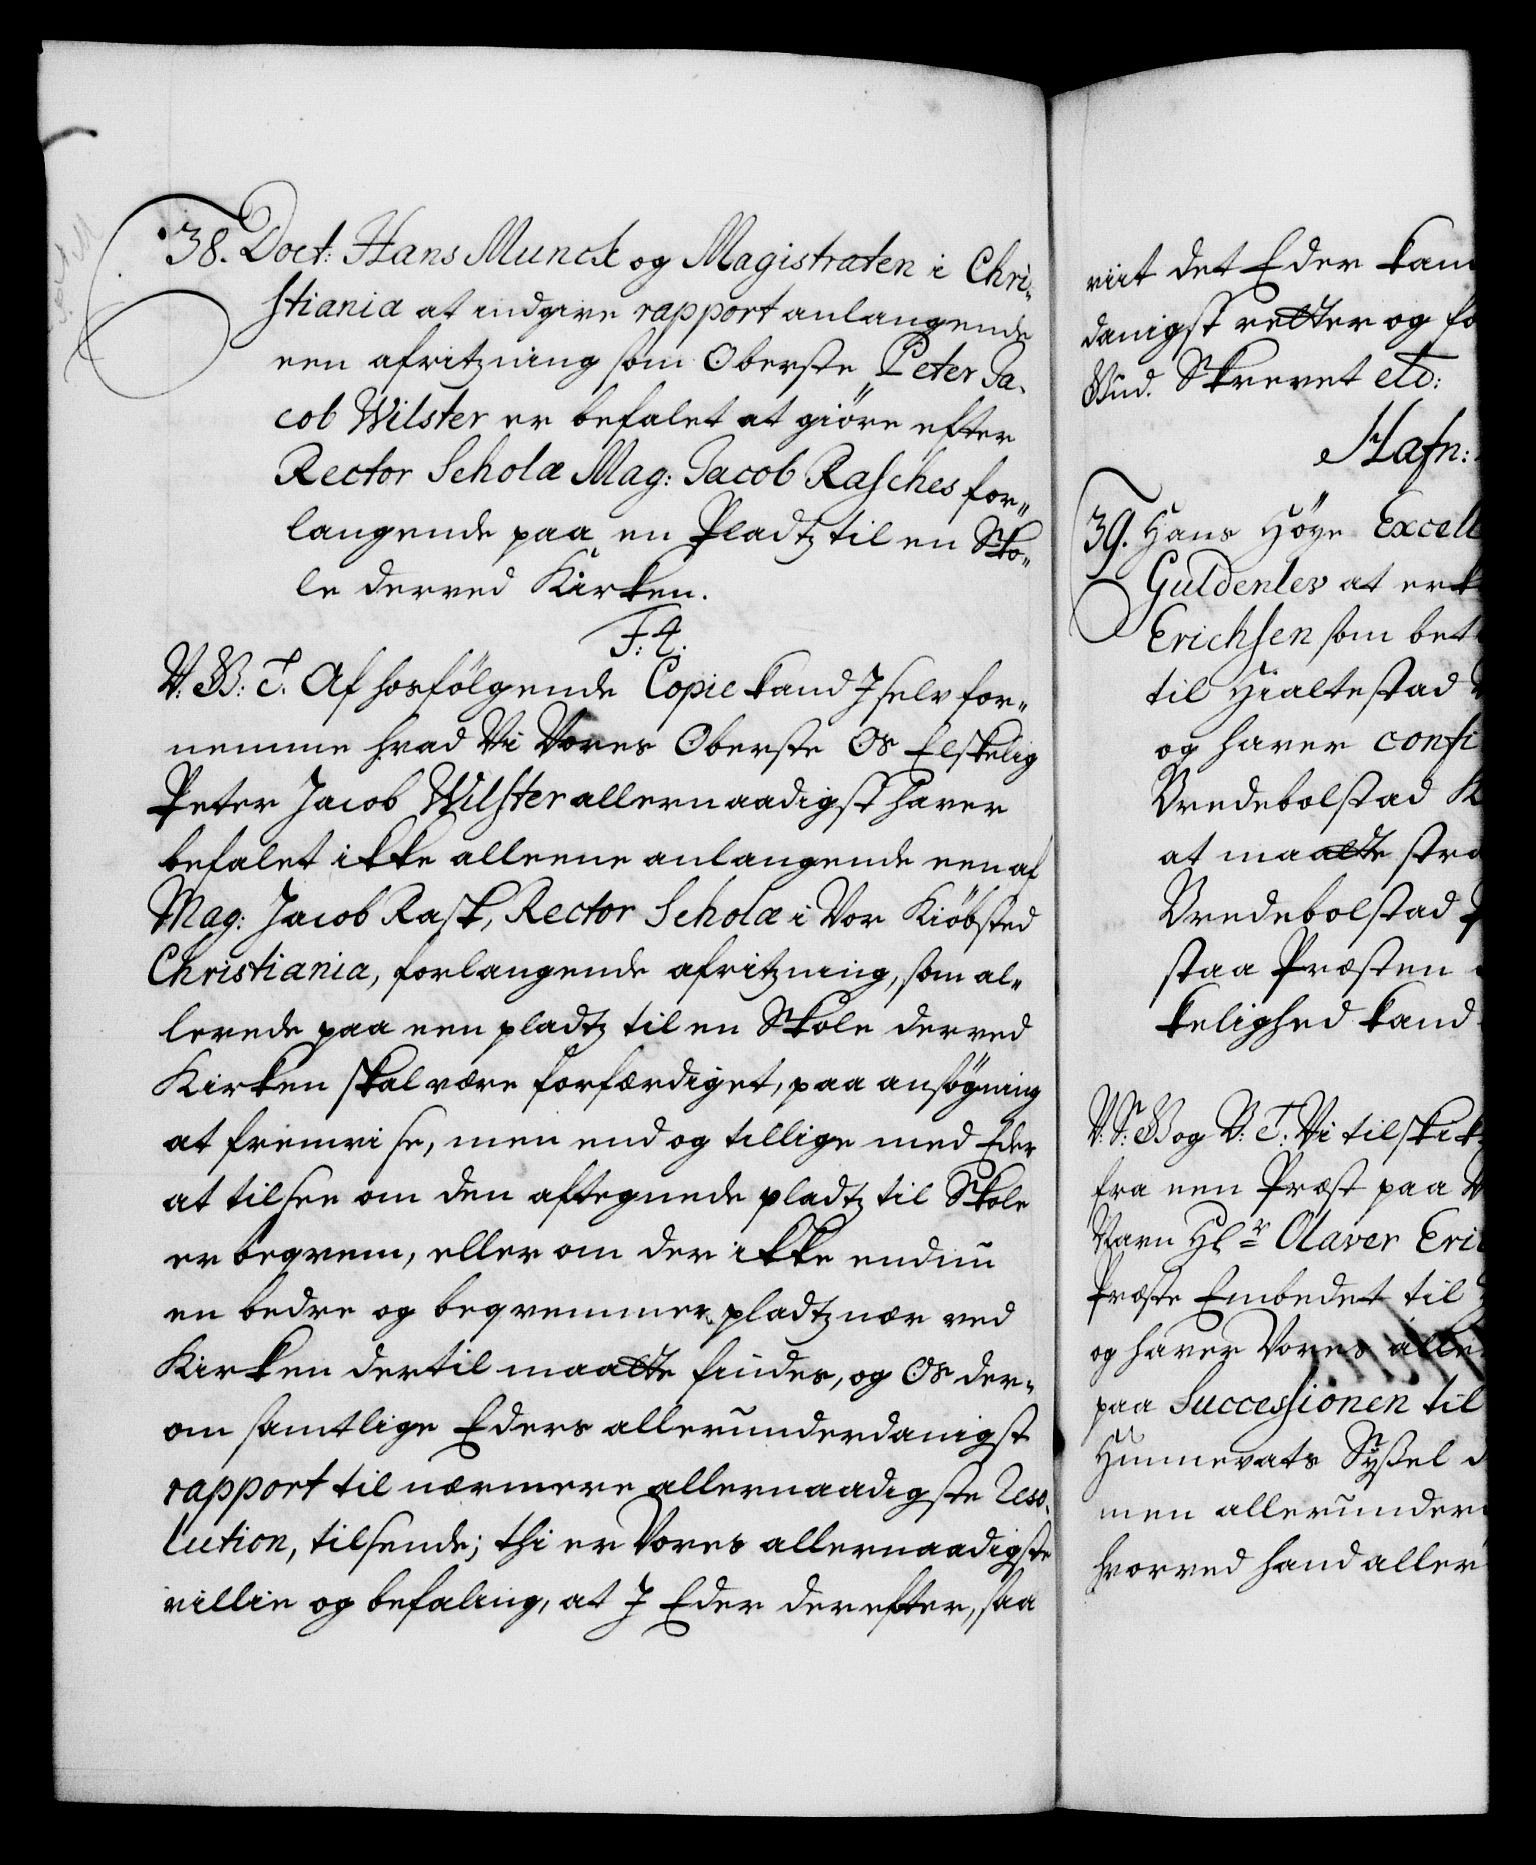 38. Doct: Hans Munck og Magistraten i Chri-
stiania at indgive rapport anlangende
een afritzning som Oberste Peter Ja-
cob Wilster er befalet at giöre efter
Rector Scholæ Mag: Jacob Rasches for-
langende paa en Pladtz til en Sko-
le derved Kirken.
F: 4.
V. G: T. Af hosfölgende Copie kand I selv for-
nemme hvad Vi Vores Oberste Os Elskelig
Peter Jacob Wilster allernaadigst haver
befalet ikke alleene anlangende een af
Mag: Jacob Rask, Rector Scholæ i Vor Kiöbsted
Christiania, forlangende afritzning, som al-
lerede paa een pladtz til en Skole derved
Kirken skal være forfærdiget, paa ansögning
at fremvise, men end og tillige med Eder
at tilsee om den aftegnede pladtz til Skole
er beqvem, eller om der ikke endnu
en bedre og beqvemmere pladtz nær ved
Kirken dertil maatte findes, og Os der-
om samtlige Eders allerunderdanigst
rapport til nærmere allernaadigste Reso-
lution, tilsende; thi er Vores allernaadigste
villie og befaling, at I Eder derefter, saa
viit det Eder kan
danigst retter og fo
Vnd. Skrevet etc:
Hafn:
39. Hans Höye Excell
Guldenlev at erk
Erichsen som bet
til Hialtestad
og haver confi
Bredebolstad K
at maatte stra
Bredebolstad P
staa Præsten
kelighed kand
V: S: G og V: T. Vi tilskik
fra een Præst paa
Navn Hr Olaver Eri
Præste Embedet til
og haver Vores alle
paa Successionen til
Hunnevats Syssel
men allerunder
hvorved hand aller